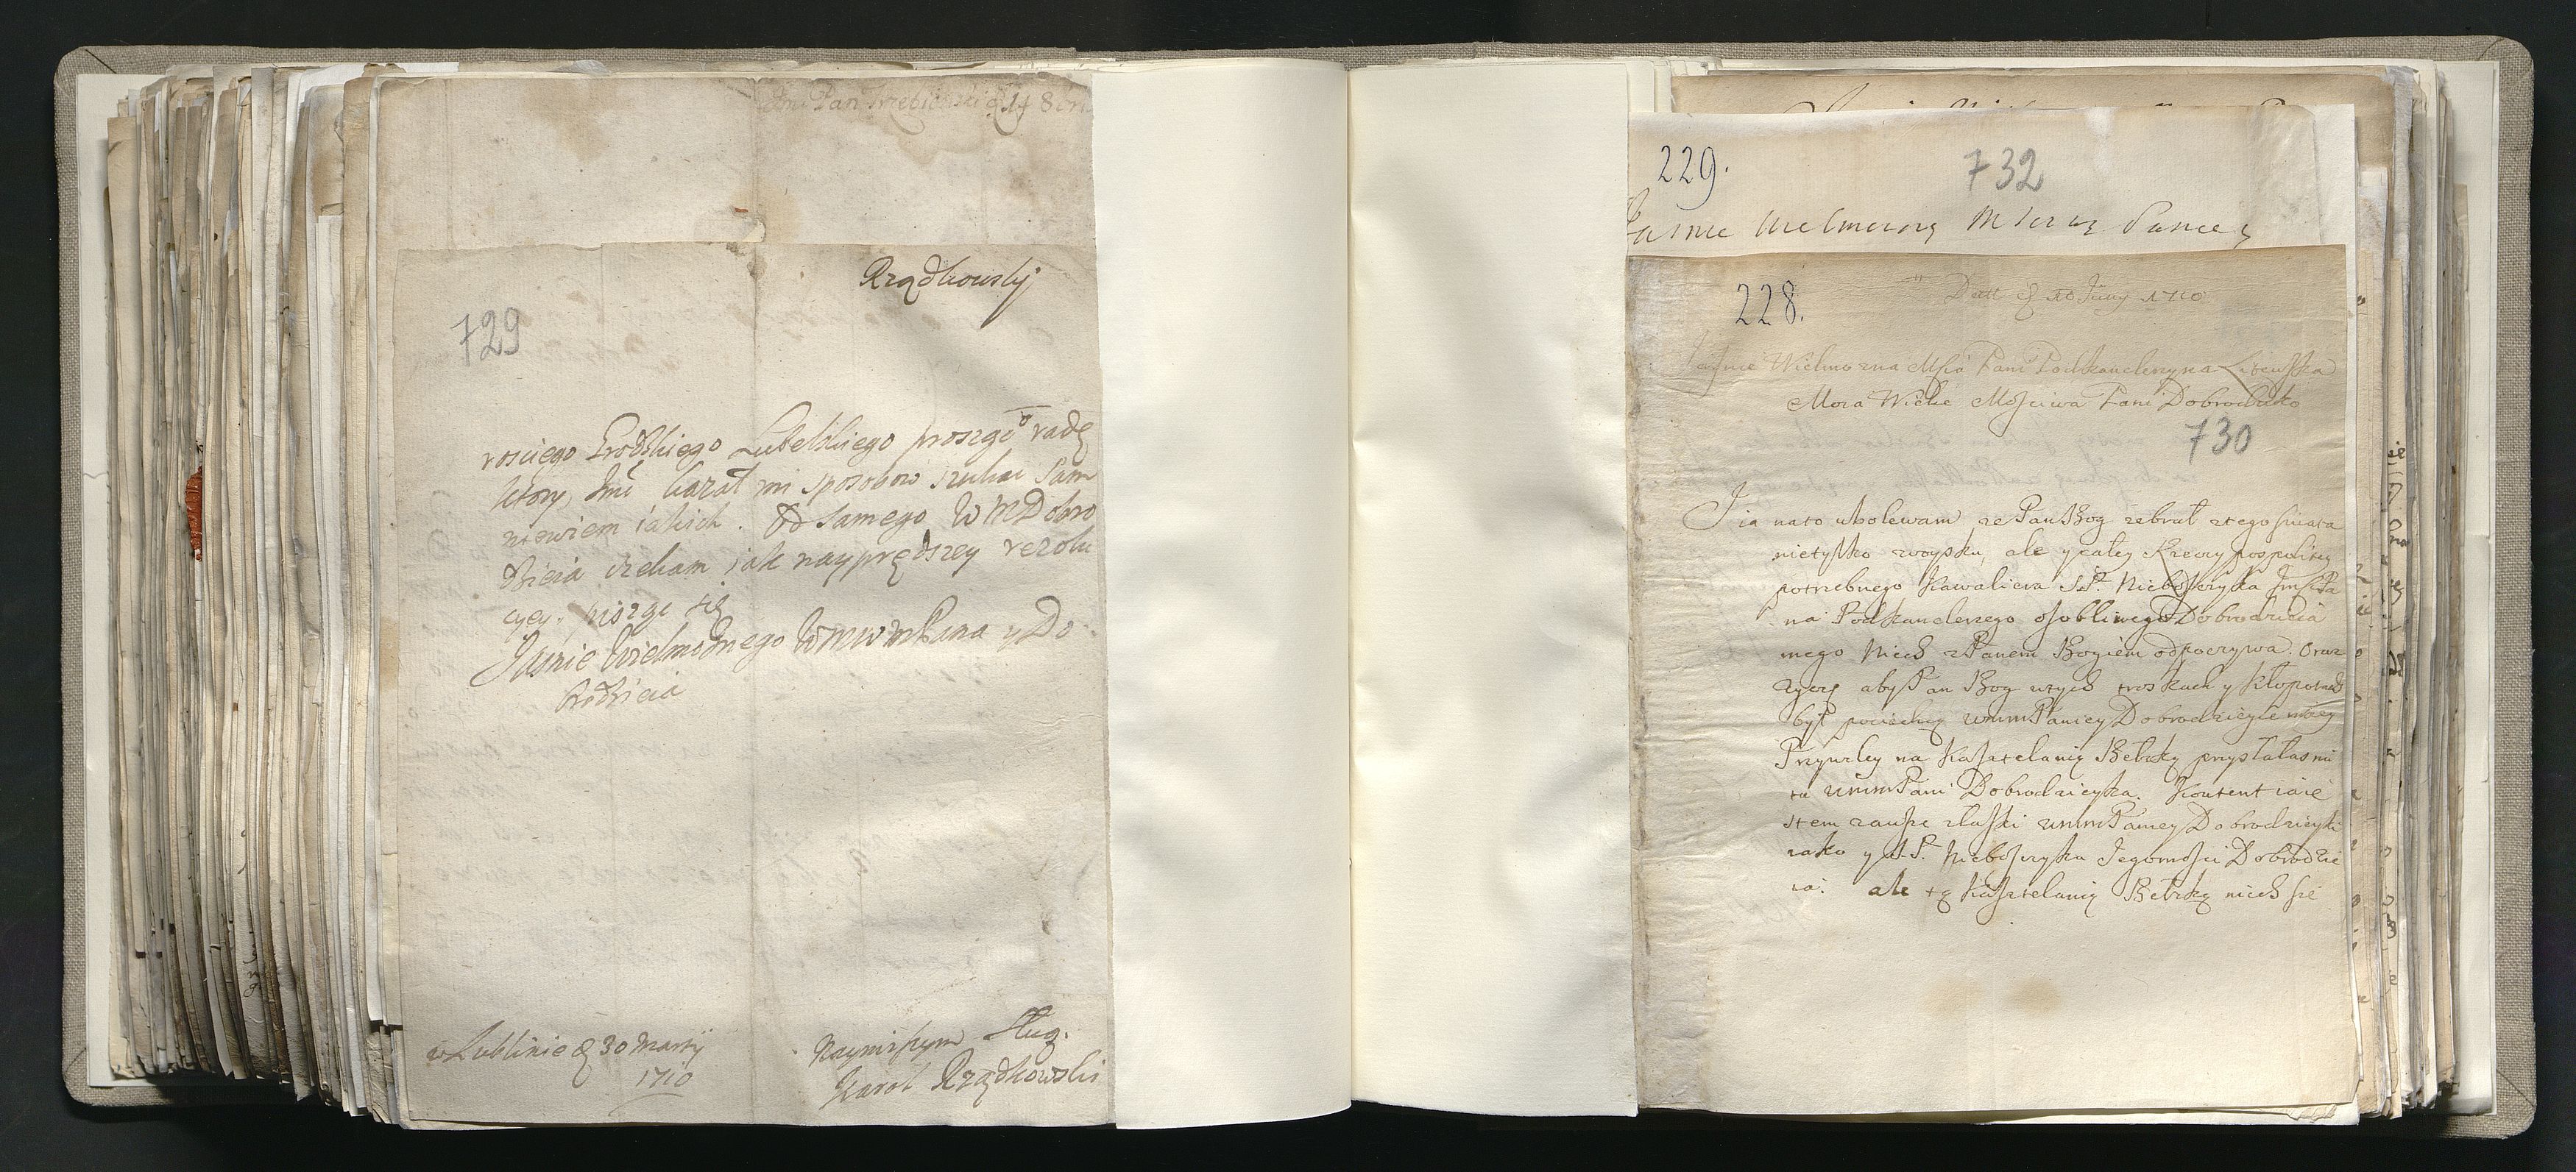 Jmć Pan
Rządkowskj
729
rosciego Grodzkiego Lubelskiego proszę o radę
ktory Jmć kazał mi sposobow szukac sam
niewiem iakich. Od samego WMDobro
dzieia czekam jak nayprędszey rezolu
cyey. pisząc się
Jasnie Wielmożnego WMWMPana y Do
brodzieia
w Lublinie d 30 Martij
1710
Nayniższym Sług.
Karol Rządkowski
229.
732
Jasnie Wielmozna Mscia Pani
228.
Datt d 10 Juny 1710
Jasnie Wielmozna Msia Pani Podkanclerzyna Litewska
Moia Wielce Mosciwa Pani Dobrodziko
730
I ia nato ubolewam ze Pan Bog zebrał ztego swiata
nietylko woysku, ale y całey Rzeczypospolitey
potrzebnego Kawaliera S.P. Nieboszczyka JmsciPa
na Podkanclerzego osobliwego Dobrodzieia
mego niech z Panem Bogiem odpoczywa. Oraz
zyczę aby Pan Bog wtych troskach y kłopotach
był pociechą WmmPaniey Dobrodzieyce moiey
Przywiley na Kasztelanią Bełzką przysłałas mi
tu WmmPani Dobrodzieyka. Kontent iaie
stem zawsze złaski WmmPaniey Dobrodzieyki
iako y S.P. Nieboszczyka Jegomosci Dobrodzie
ia: ale tę Kasztelanią Bełzką niech sie